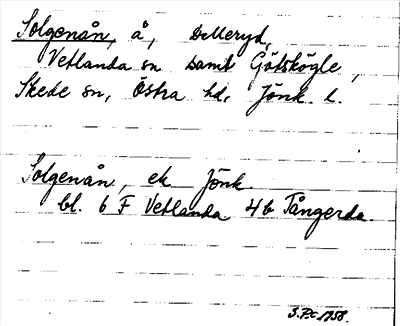 Solgenån, å, Delleryd,
Vetlanda sn samt Götskögle,
Skede sn, Östra hd, Jönk. l.
Solgenån, ek Jönk.
bl. 6 F Vetlanda 4b Tångerda.
1958.